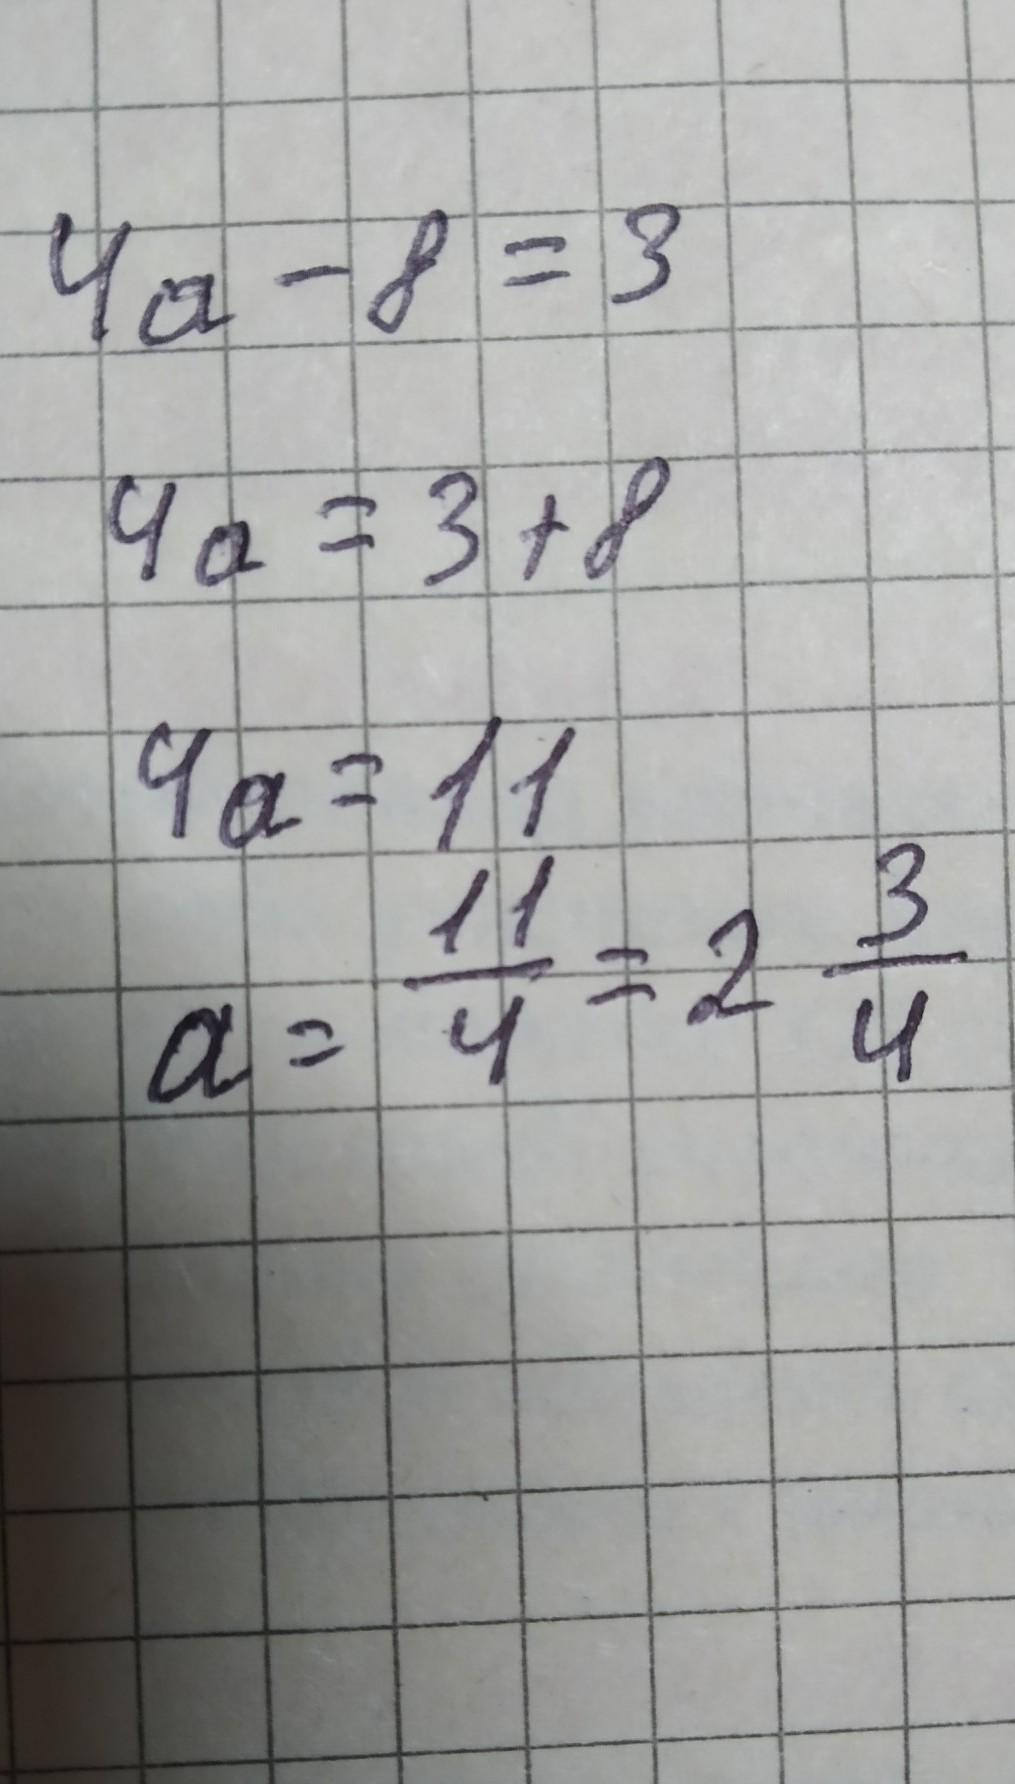 4a - 8 = 3
4a = 3 + 8
4a = 11
a = 11/4 = 2 3/4